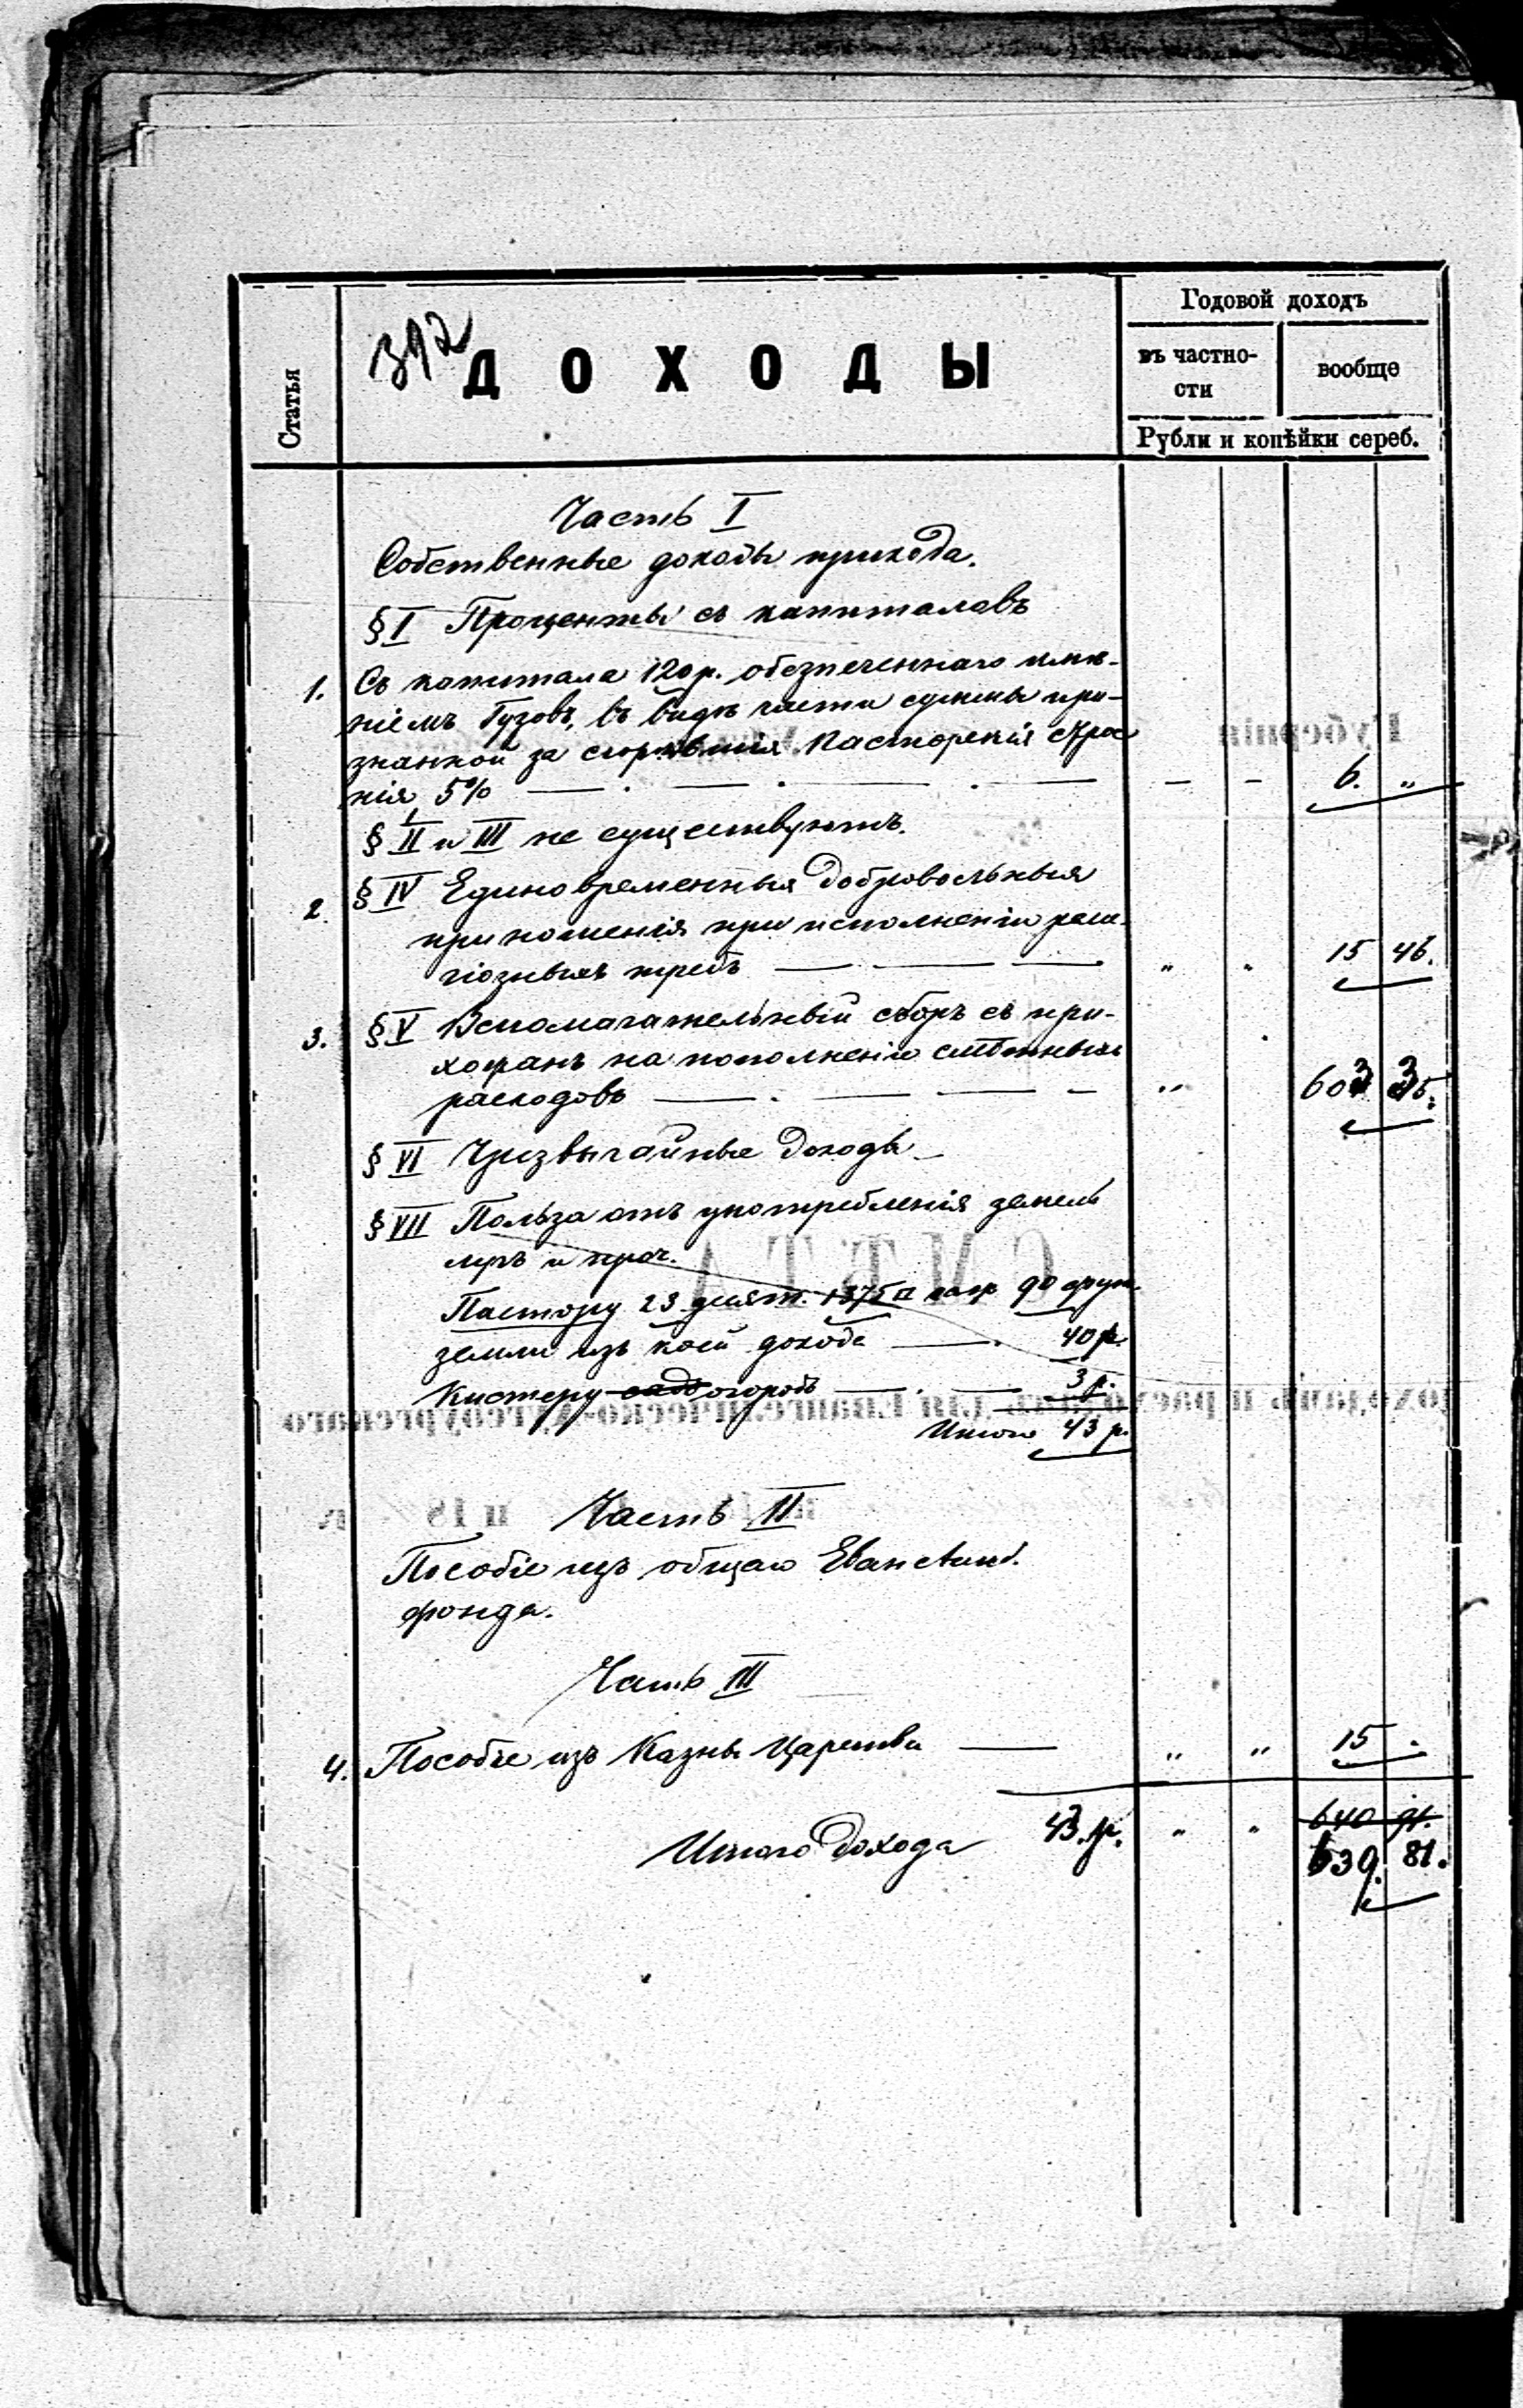 392
ДОХОДЫ
Статья
Годовой доходъ
въ частно-
сти
вообще
Рубли и копѣйки сереб.
Часть I
Собственные доходы прихода.
§ I Проценты съ капиталовъ
1. Съ капитала 120 р. обезпеченнаго имѣ-
ніемъ Гузовъ, въ видѣ части суммы при-
знанной за сгорѣвшія Пасторскія строе
нія 5% — — — — — 6. „
§ II и III не существуютъ.
2. § IV Единовременныя добровольныя
приношенія при исполненіи рели-
гіозныхъ требъ — — — „ „ 15 46.
3. § V Вспомагательный сборъ съ при-
хожанъ на пополненіе смѣтныхъ
расходовъ — — — — „ 603 35.
§ VI Чрезвычайные доходы —
§ VII Польза отъ употребленія земель
и проч.
Пастору 23 десят. 1375 □ 90
земли изъ коей дохода — 40 р.
Кистеру садъ огородъ — — 3 р.
Итого 43 р.
Часть II
Пособіе изъ общаго Еванг. Аугсб.
фонда.
Часть III
4. Пособіе изъ Казны Царства — „ „ 15 .
640 91.
Итого дохода 43. р. „ „ 639. 81.